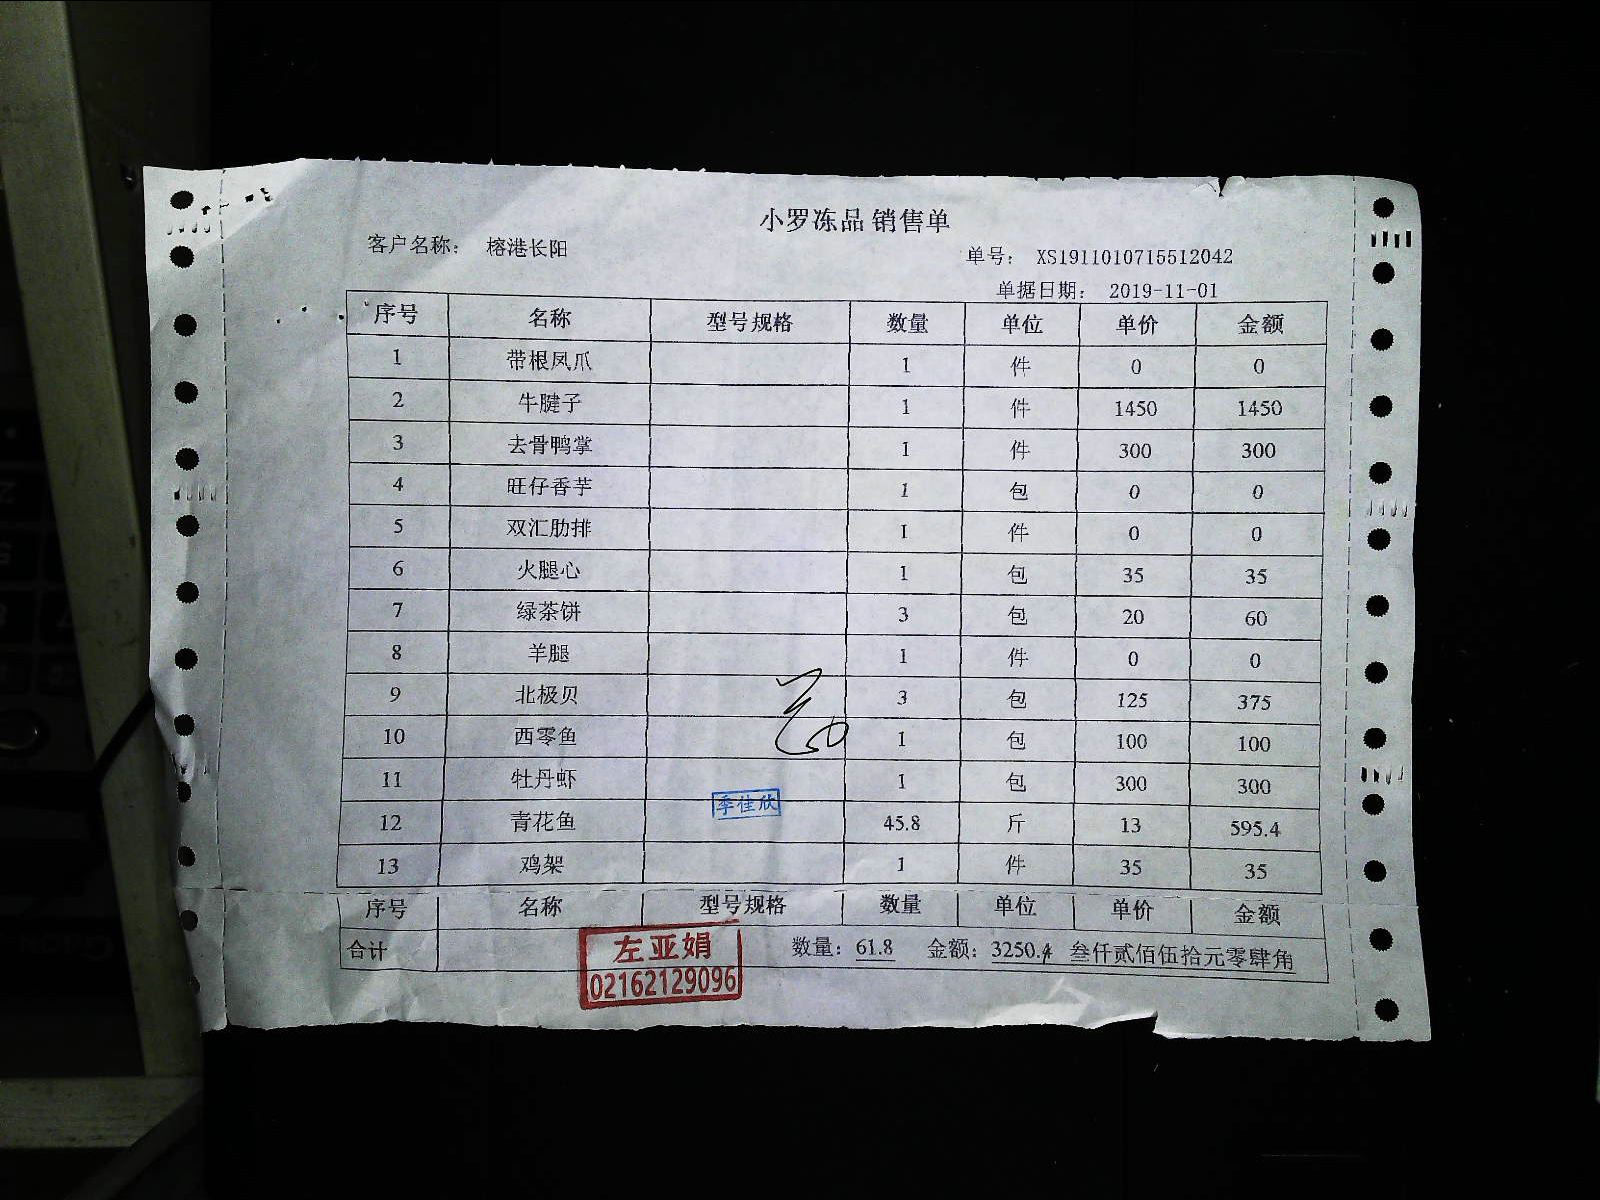 小罗冻品 销售单
客户名称: 榕港长阳
单号: XS1911010715512042
单据日期: 2019-11-01
序号 名称 型号规格 数量 单位 单价 金额
1 带根凤爪 1 件 0 0
2 牛腱子 1 件 1450 1450
3 去骨鸭掌 1 件 300 300
4 旺仔香芋 1 包 0 0
5 双汇肋排 1 件 0 0
6 火腿心 1 包 35 35
7 绿茶饼 3 包 20 60
8 羊腿 1 件 0 0
9 北极贝 3 包 125 375
10 西零鱼 1 包 100 100
11 牡丹虾 1 包 300 300
李佳欣
12 青花鱼 45.8 斤 13 595.4
13 鸡架 1 件 35 35
序号 名称 型号规格 数量 单位 单价 金额
合计 数量: 61.8 金额: 3250.4 叁仟贰佰伍拾元零肆角
左亚娟
02162129096